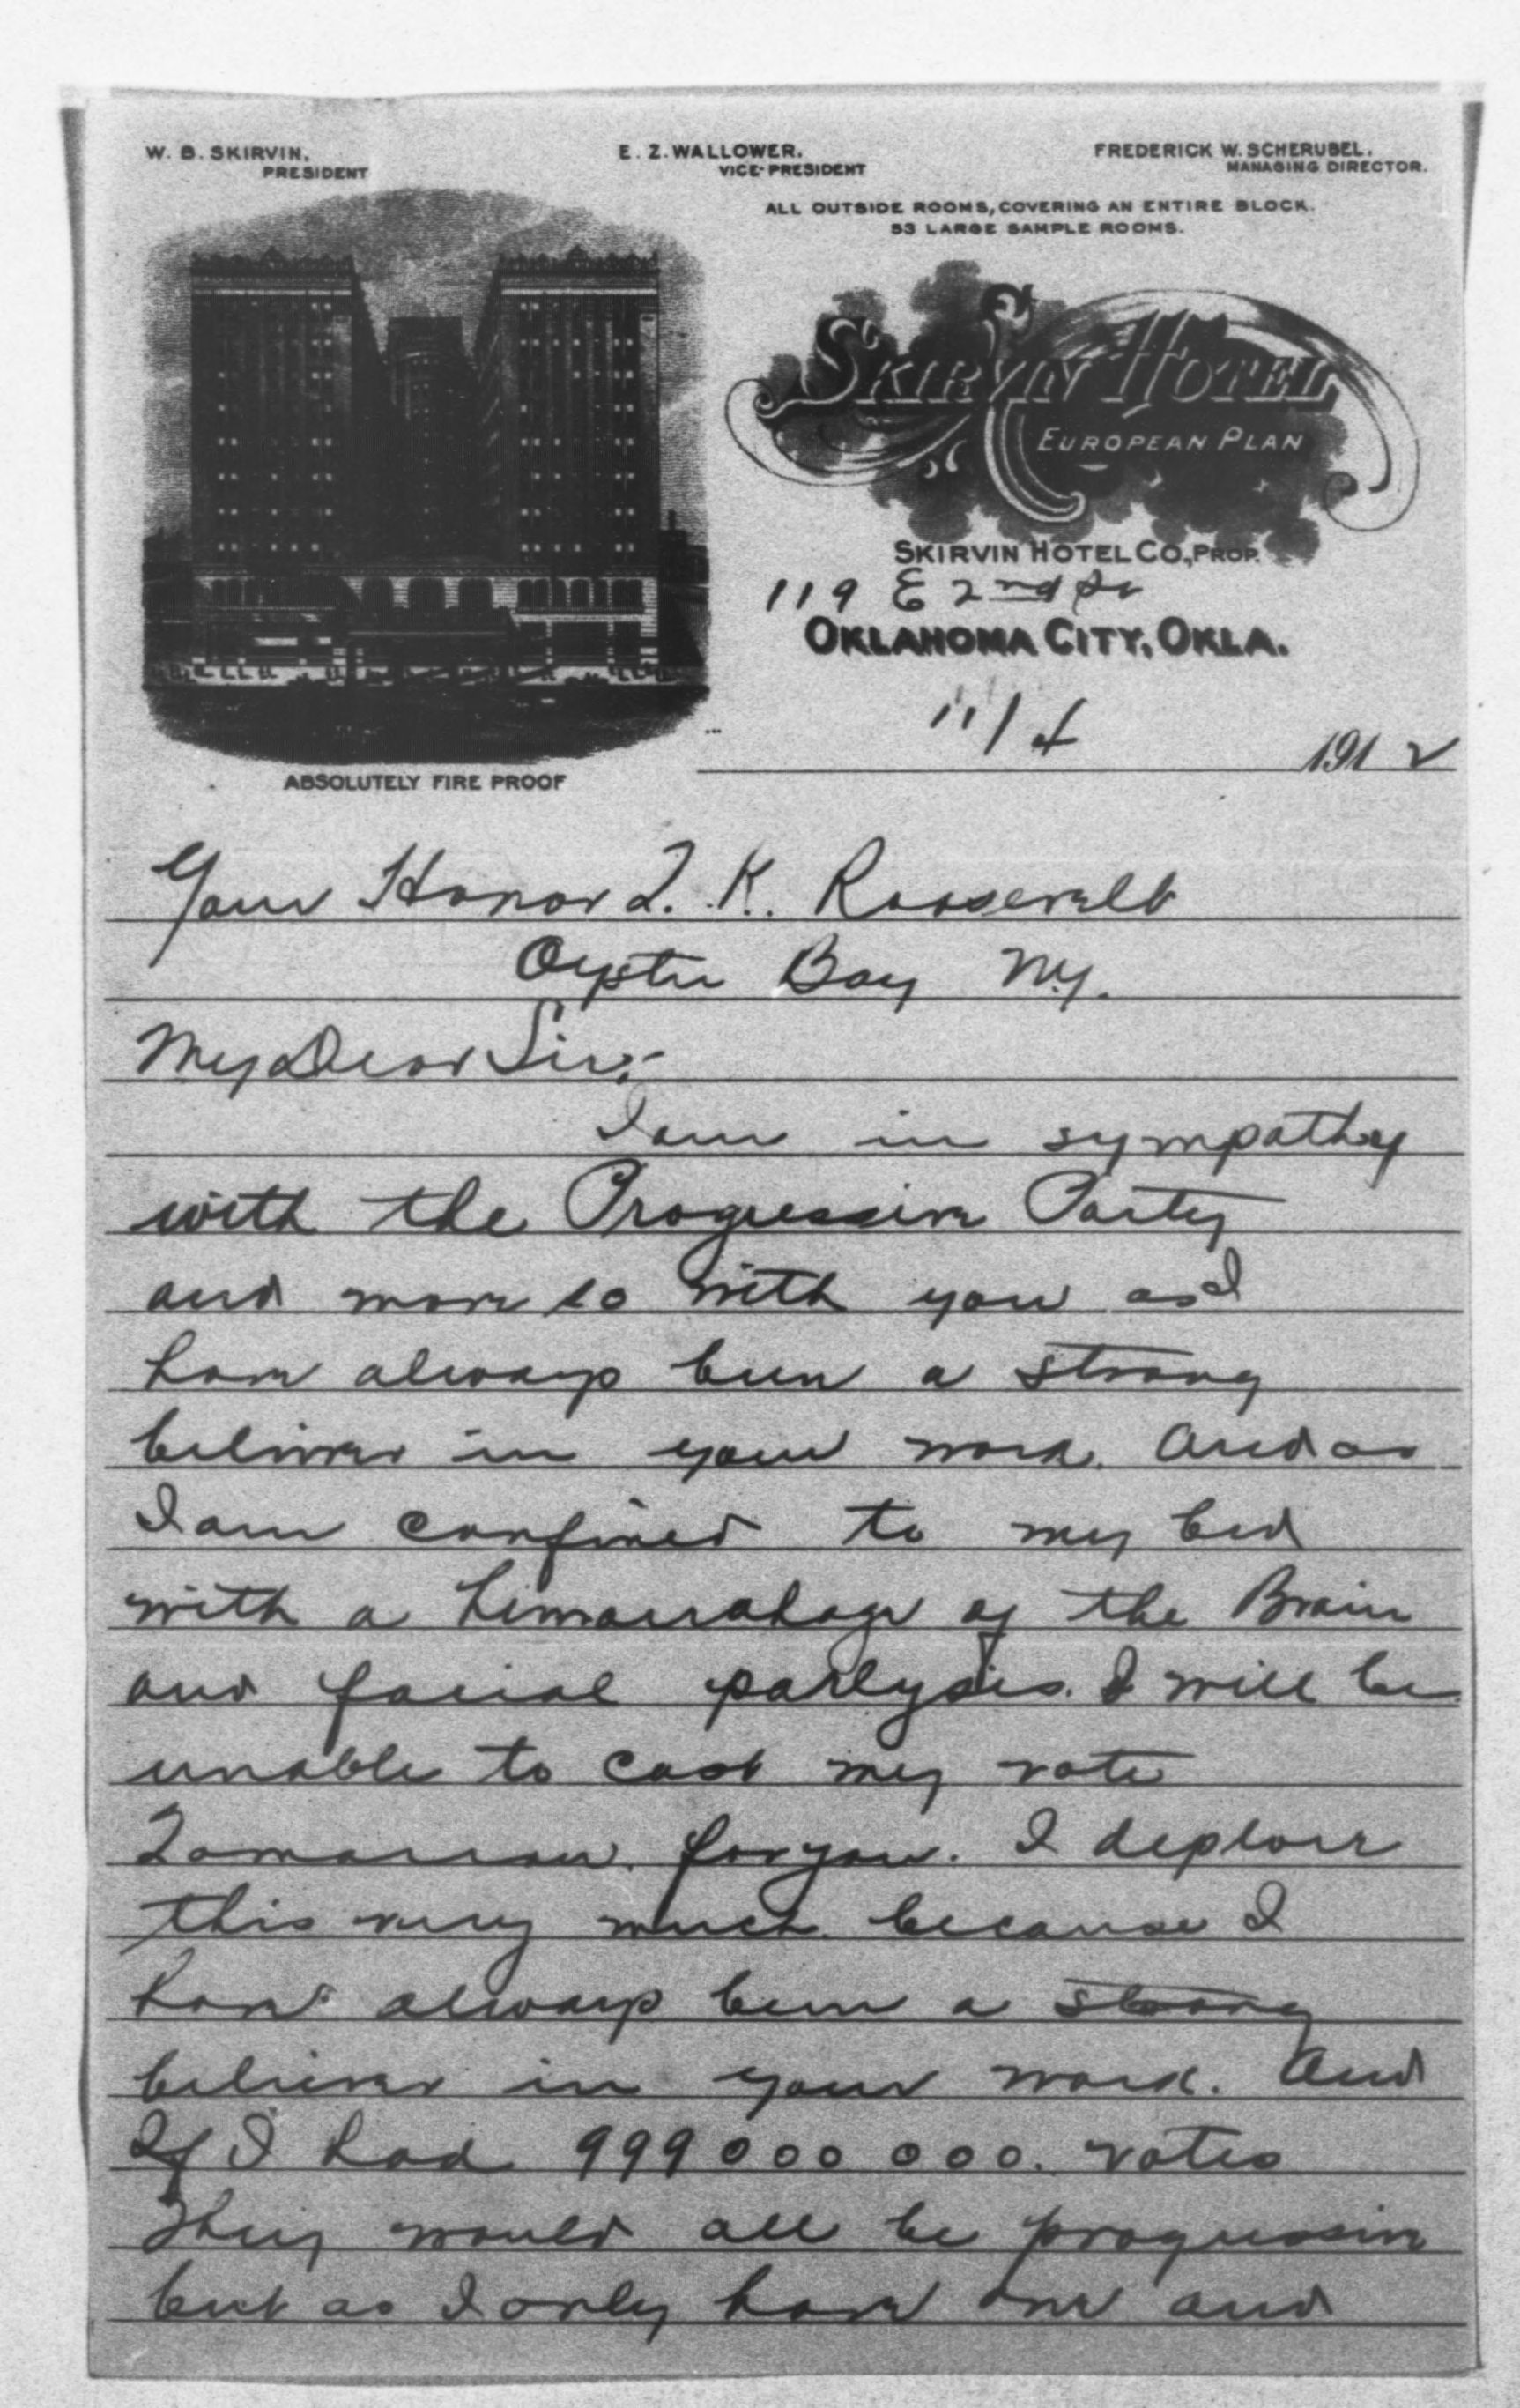 W. B. SKIRVIN,
PRESIDENT
E. Z. WALLOWER.
VICE-PRESIDENT
FREDERICK W. SCHERUBEL.
MANAGING DIRECTOR.
ALL OUTSIDE ROOMS, COVERING AN ENTIRE BLOCK.
53 LARGE SAMPLE ROOMS.
SKIRVIN HOTEL
EUROPEAN PLAN
SKIRVIN HOTEL CO., PROP.
119 E 2nd St
OKLAHOMA CITY, OKLA.
11/4 1912
ABSOLUTELY FIRE PROOF
Your Honor T. K. Roosevelt
Oyster Bay N.Y.
My Dear Sir;-
I am in sympathy
with the Progressive Party
and more so with you as I
have always been a strong
beliver in your work. And as
I am confined to my bed
with a himorrahage of the Brain
and facial parlysis. I will be
unable to cast my vote
Tomorrow. for you. I deplore
this very much because I
have always been a strong
believer in your work. And
If I had 999000000. votes
They would all be progressive
but as I only have one and